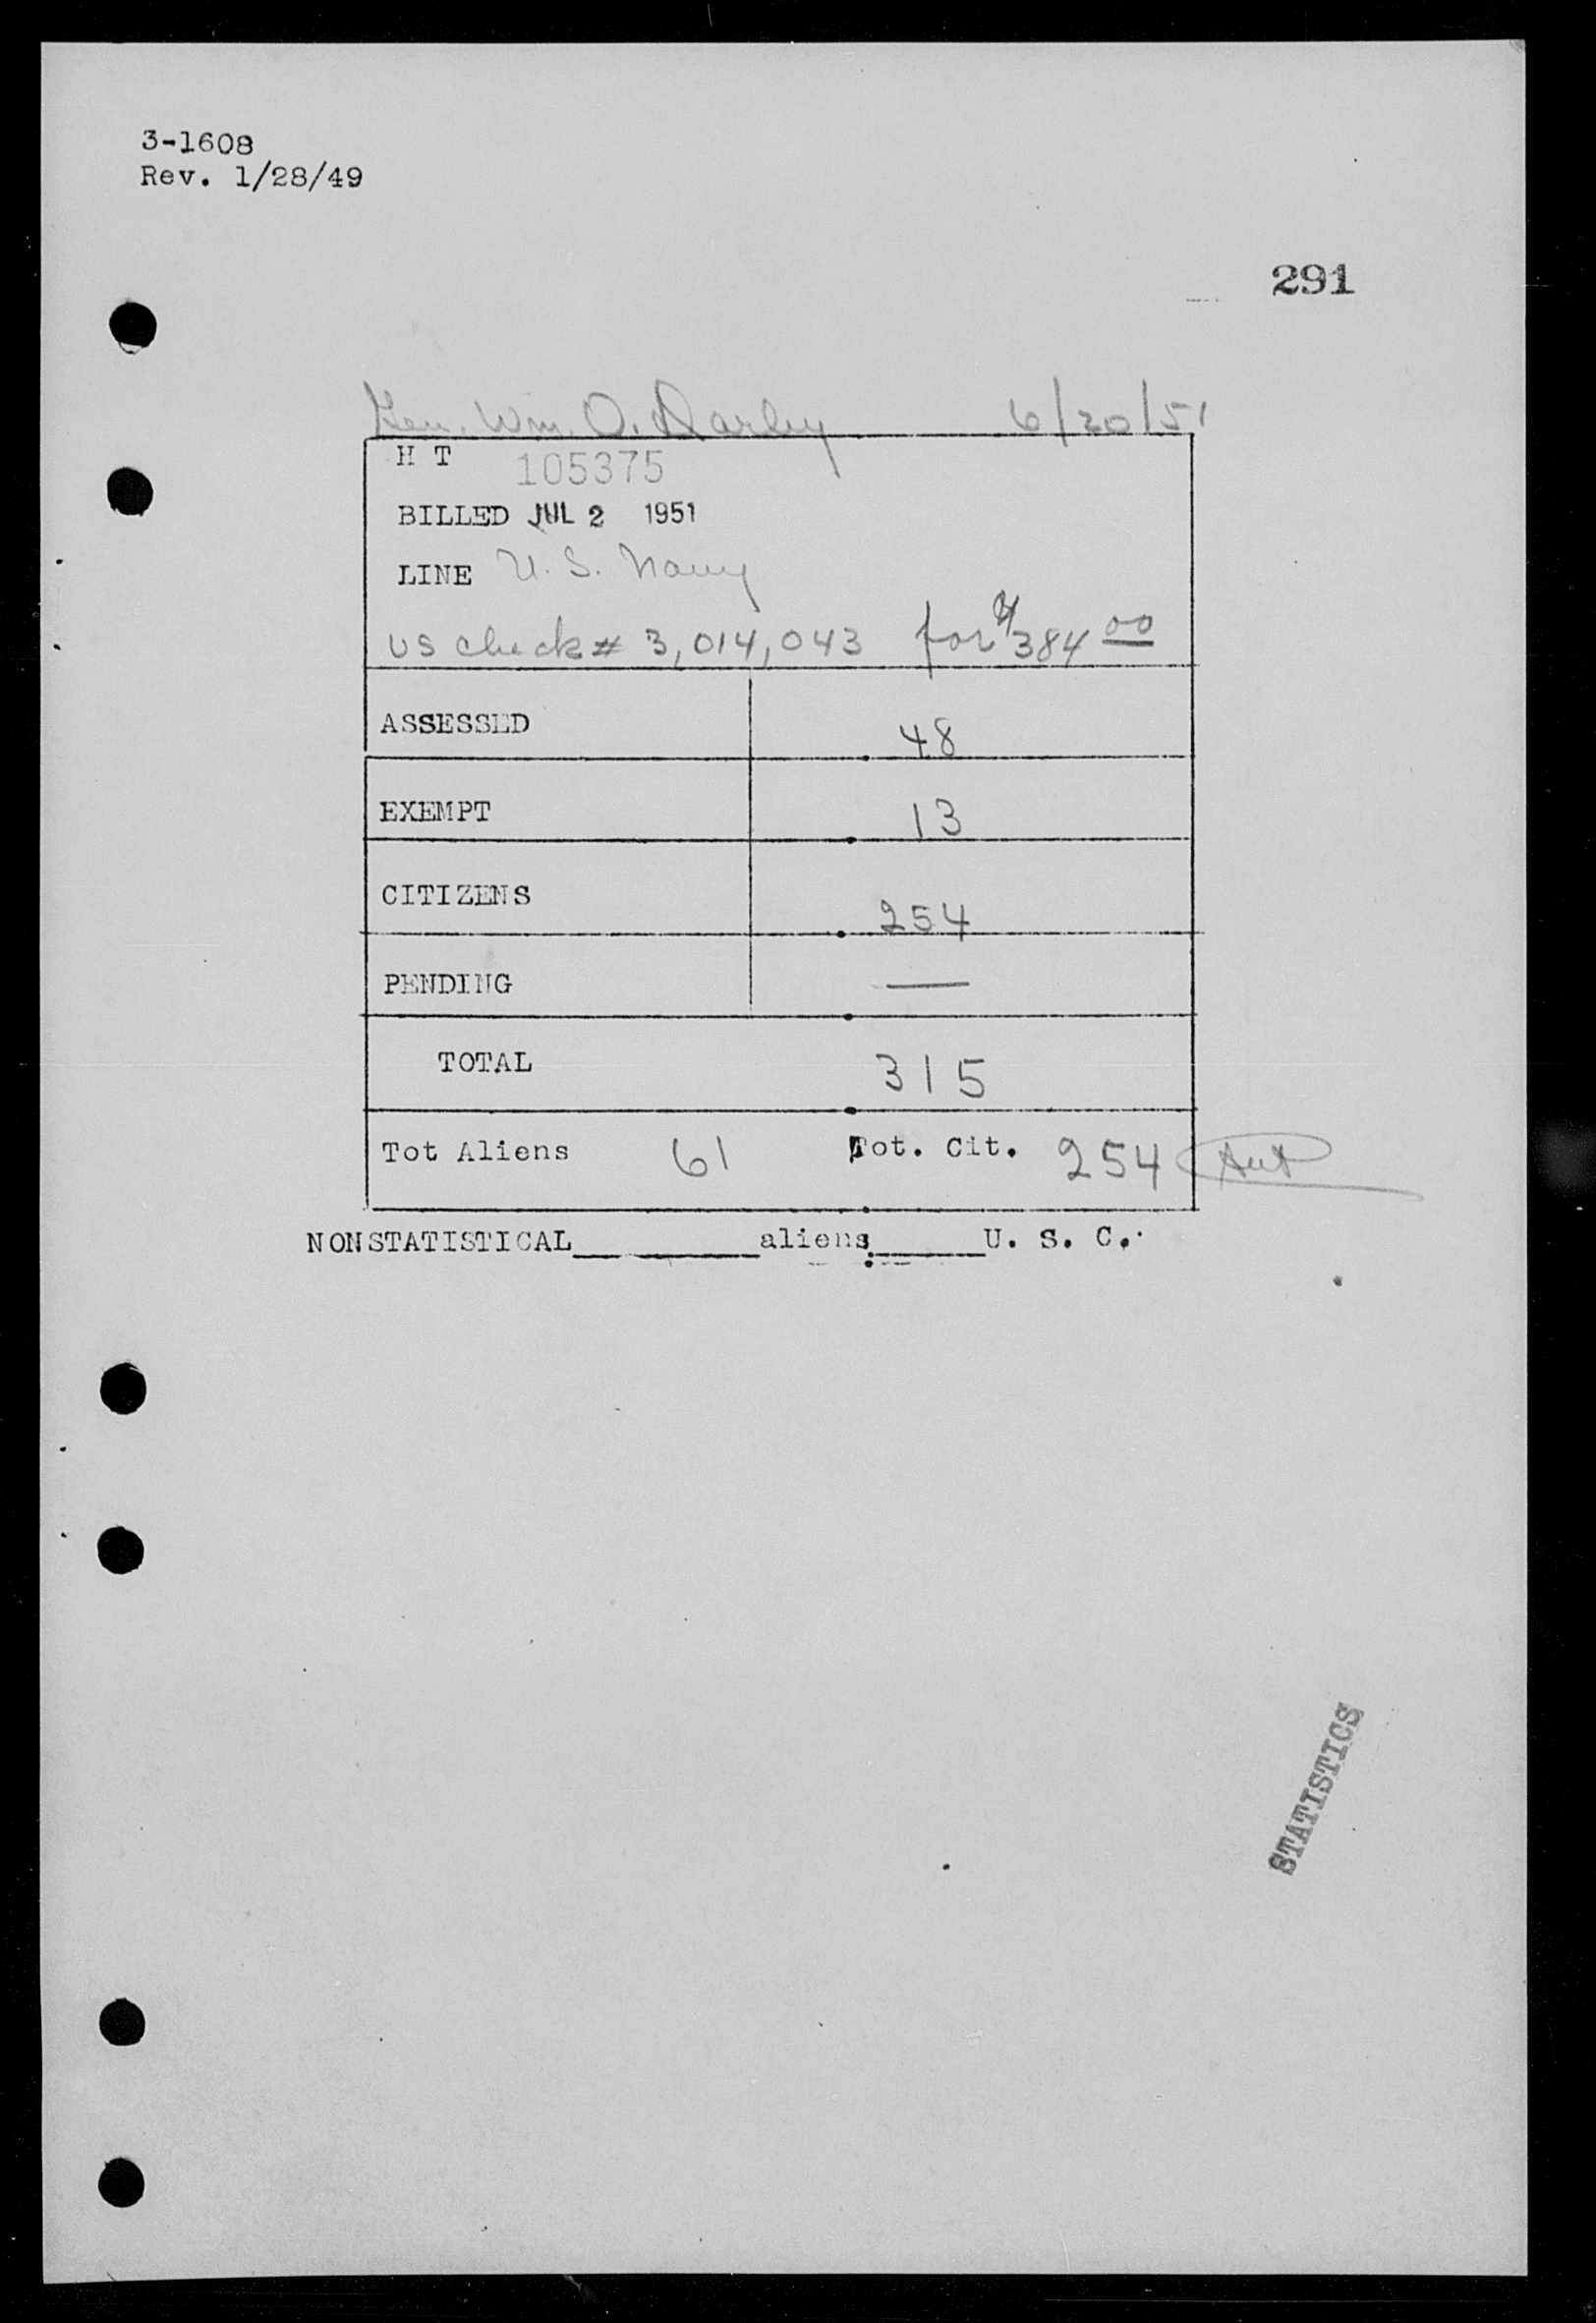 3-1608
Rev. 1/28/49
291
Gen. Wm. O. Darby 6/20/51
H T 105375
BILLED JUL 2 1951
LINE U. S. Navy
US check # 3,014,043 for $384 00
ASSESSED 48
EXEMPT 13
CITIZENS 254
PENDING —
TOTAL 315
Tot Aliens 61 Tot. Cit. 254
NONSTATISTICAL________aliens_____U. S. C.
STATISTICS